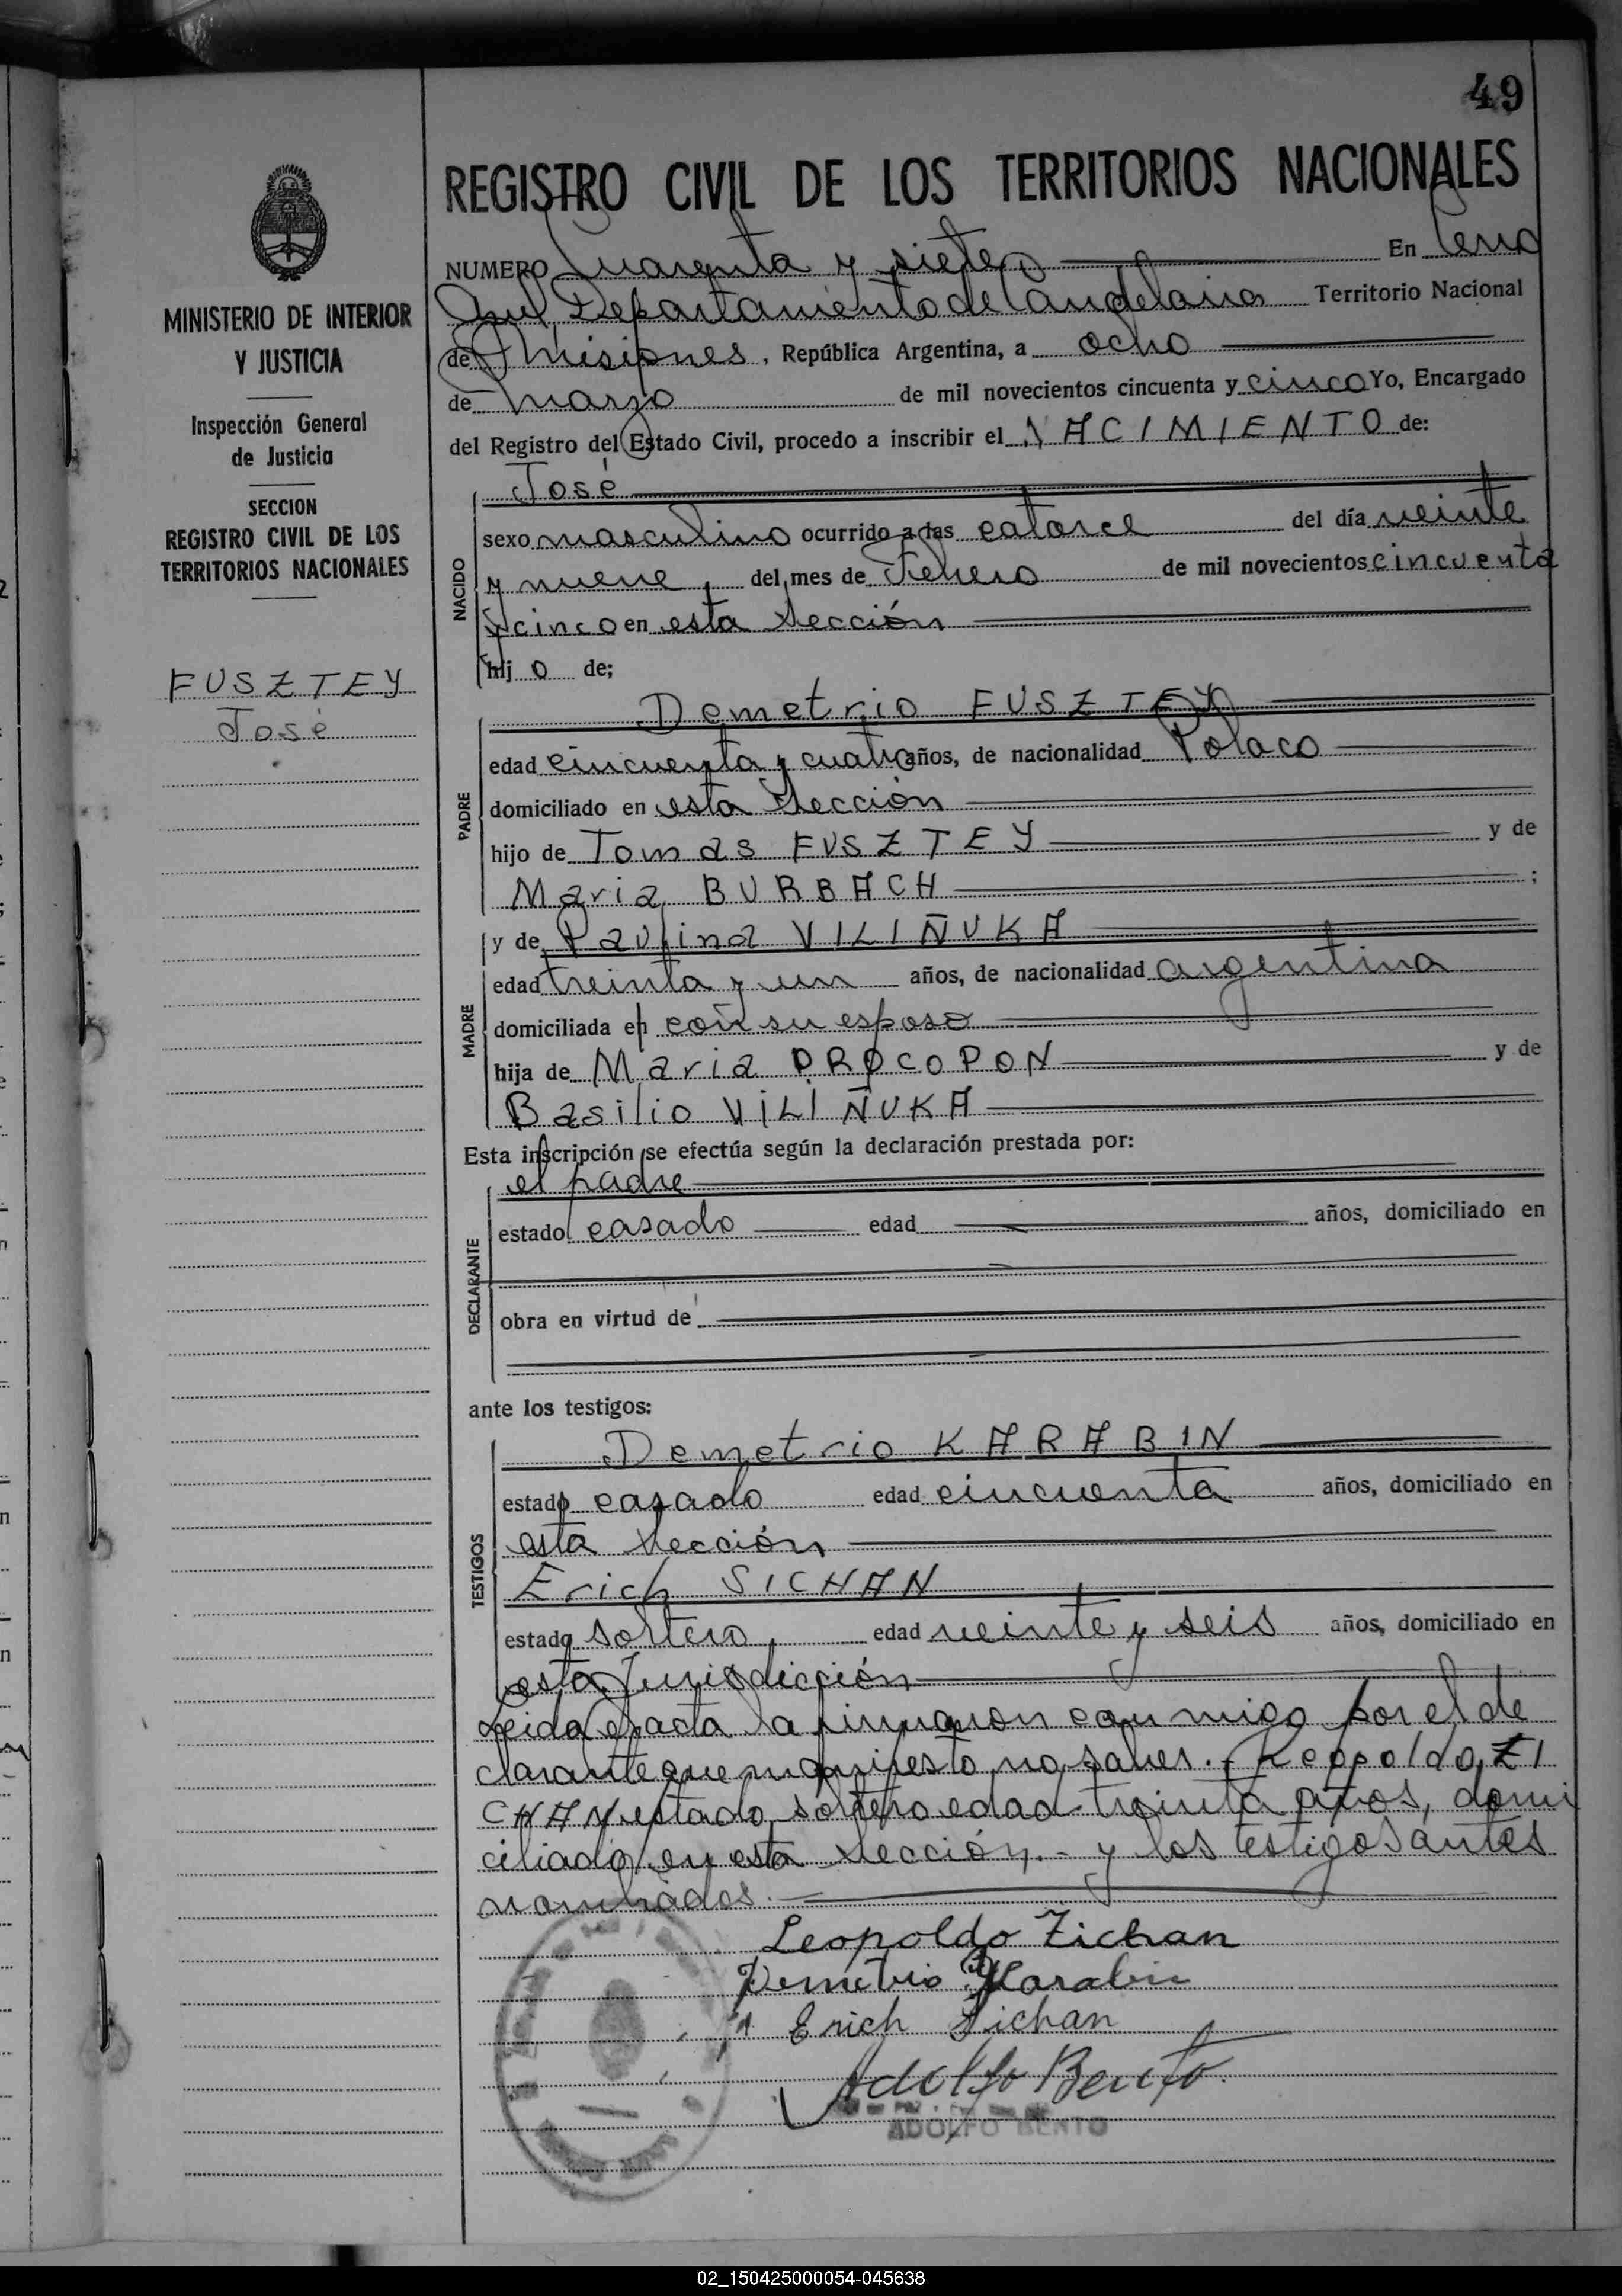 49
REGISTRO CIVIL DE LOS TERRITORIOS NACIONALES
NUMERO Cuarenta y siete En Cerro
Azul, Departamento de Candelaria Territorio Nacional
de Misiones, República Argentina, a ocho
de marzo de mil novecientos cincuenta y cinco Yo, Encargado
del Registro del Estado Civil, procedo a inscribir el NACIMIENTO de:
MINISTERIO DE INTERIOR
Y JUSTICIA
Inspección General
de Justicia
SECCION
REGISTRO CIVIL DE LOS
TERRITORIOS NACIONALES
FUSZTEY
José
NACIDO
José
sexo masculino ocurrido a las catorce del día veinte
y nueve, del mes de Febrero de mil novecientos cincuenta
y cinco en esta Sección
hijo de;
PADRE
Demetrio FUSZTEY
edad cincuenta y cuatro años, de nacionalidad Polaco
domiciliado en esta Sección
hijo de Tomas FUSZTEY y de
Maria BURBACH ;
MADRE
y de Paulina VILIÑUKA
edad treinta y un años, de nacionalidad argentina
domiciliada en con su esposo
hija de Maria PROCOPON y de
Basilio VILIÑUKA
Esta inscripción se efectúa según la declaración prestada por:
DECLARANTE
el padre
estado casado edad años, domiciliado en
obra en virtud de
ante los testigos:
TESTIGOS
Demetrio KARABIN
estado casado edad cincuenta años, domiciliado en
esta Sección
Erich SICHAN
estado soltero, edad veinte y seis años, domiciliado en
esta Jurisdicción
Leida el acta la firmaron conmigo por el de
clarante que manifestó no saber.- Leopoldo ZI
CHAN estado soltero edad treinta años, domi
ciliado en esta Sección.- y los testigos antes
nombrados.-
Leopoldo Zichan
Demetrio Karabin
Erich Zichan
Adolfo Bento.
ADOLFO BENTO
02_150425000054-045638